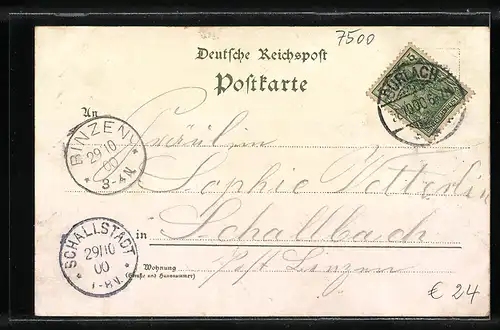 7500
Deutsche Reichspost
Postkarte
5
DURLACH
BINZEN
29 10
00
3-4N.
An
Fräulein
Sophie Vetterlin
in Schallbach
SCHALLSTADT
29 10
00
7-8N.
Wohnung
(Straße und Hausnummer)
Post Binzen
€ 24